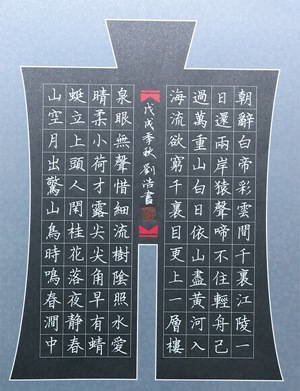 朝辭白帝彩雲間千裏江陵一
日還兩岸猿聲啼不住輕舟己
過萬重山白日依山盡黃河入
海流欲窮千裏目更上一層樓
戊戌季秋劉浩書
泉眼無聲惜細流樹陰照水愛
晴柔小荷才露尖尖角早有蜻
蜓立上頭人閑桂花落夜靜春
山空月出驚山鳥時鳴春澗中